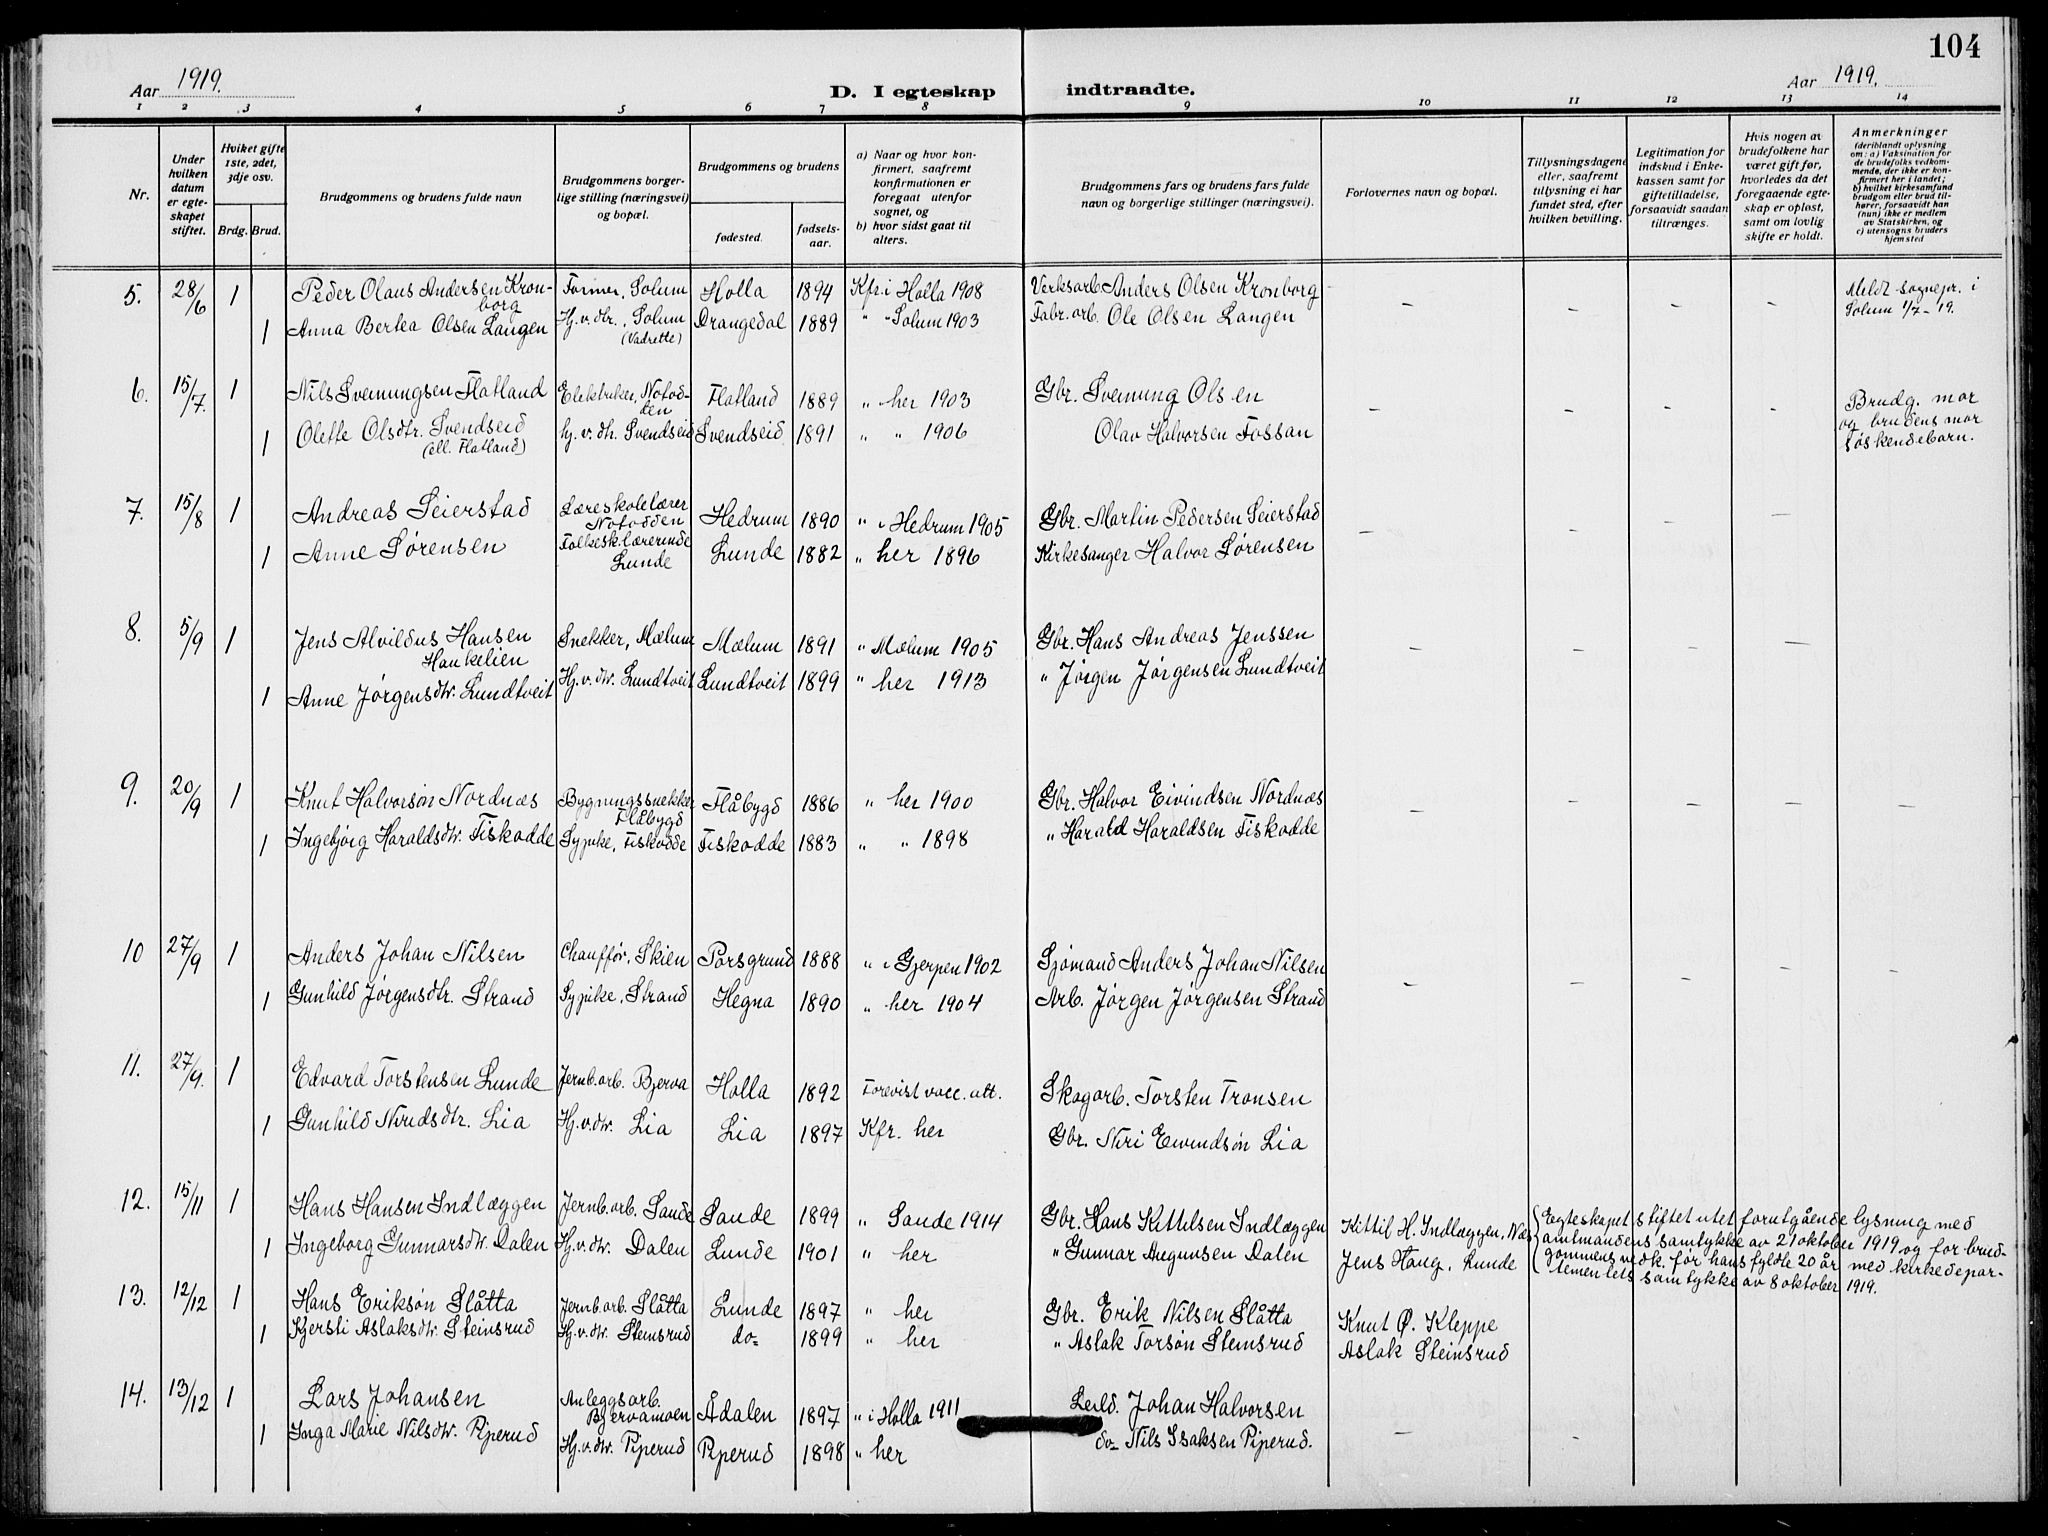 104
Aar 1919.
D. I egteskap indtraadte.
Aar 1919.
1 2 3 4 5 6 7 8 9 10 11 12 13 14
Nr.
Under hvilken datum er egteskapet stiftet.
Hviket gifte 1ste, 2det, 3dje osv.
Brdg. Brud.
Brudgommens og brudens fulde navn
Brudgommens borgerlige stilling (næringsvei) og bopæl.
Brudgommens og brudens
fødested. fødselsaar.
a) Naar og hvor konfirmert, saafremt konfirmationen er foregaat utenfor sognet, og
b) hvor sidst gaat til alters.
Brudgommens fars og brudens fars fulde navn og borgerlige stillinger (næringsvei).
Forlovernes navn og bopæl.
Tillysningsdagene eller, saafremt tillysning ei har fundet sted, efter hvilken bevilling.
Legitimation for indskud i Enkekassen samt for giftetilladelse, forsaavidt saadan tiltrænges.
Hvis nogen av brudefolkene har været gift før, hvorledes da det foregaaende egteskap er opløst, samt om lovlig skifte er holdt.
Anmerkninger
(deriblandt oplysning om: a) Vaksination for de brudefolks vedkommende, der ikke er konfirmert her i landet;
b) hvilket kirkesamfund brudgom eller brud tilhører, forsaavidt han (hun) ikke er medlem av Statskirken, og
c) utensogns bruders hjemsted
5. 28/6 1 Peder Olaus Andersen Kronborg Former, Solum Holla 1894 Kfr. i Holla 1908 Verksarb. Anders Olsen Kronborg - - - - Meldt sognepr. i Solum 1/7-19.
1 Anna Bertea Olsen Langen Hj. v. dtr., Solum (Vadrette) Drangedal 1889 " " Solum 1903 Fabr. arb. Ole Olsen Langen
6. 15/7. 1 Nils Svenungsen Flatland Elektriker, Notodden Flatland 1889 " her 1903 Gbr. Svenung Olsen - - - - Brudg. mor og brudens mor søskendebarn.
1 Olette Olsdtr. Svendseid (ell. Flatland) hj. v. dtr. Svendseid Svendseid 1891 " " 1906 Olav Halvorsen Fossan
7. 15/8 1 Andreas Seierstad Læreskolelærer Notodden Hedrum 1890 " i Hedrum 1905 Gbr. Martin Pedersen Seierstad - - - -
1 Anne Sørensen Folkesk.lærerinde Lunde Lunde 1882 " her 1896 Kirkesanger Halvor Sørensen
8. 5/9 1 Jens Alvildus Hansen Haukelien Snekker, Mælum Mælum 1891 " Mælum 1905 Gbr. Hans Andreas Jenssen - - - - -
1 Anne Jørgensdtr. Lundtveit Hj. v. dtr. Lundtveit Lundtveit 1899 " her 1913 " Jørgen Jørgensen Lundtveit
9. 20/9 1 Knut Halvorsøn Nordnæs Bygningssnekker Flåbygd Flåbygd 1886 " her 1900 Gbr. Halvor Eivindsen Nordnæs - - - - -
1 Ingebjørg Haraldsdtr. Fiskodde Sypike, Fiskodde Fiskodde 1883 " " 1898 " Harald Haraldsen Fiskodde
10 27/9 1 Anders Johan Nilsen Chauffør, Skien Porsgrund 1888 " i Gjerpen 1902 Sjømand Anders Johan Nilsen - - - - -
1 Gunhild Jørgensdtr. Strand Sypike, Strand Hegna 1890 " her 1904 Arb. Jørgen Jørgensen Strand
11. 27/9. 1 Edvard Torstensen Lunde Jernb. arb. Bjerva Holla 1892 Forevist vacc. att. Skogarb. Torsten Tronsen
1 Gunhild Niridsdtr. Lia Hj. v. dtr. Lia Lia 1897 Kfr. her Gbr. Niri Eivindsøn Lia
12. 15/11 1 Hans Hansen Indlæggen Jernb. arb. Sande Sande 1899 " Sande 1914 Gbr. Hans Kittilsen Indlæggen Kittil H. Indlæggen, Næs
1 Ingeborg Gunnarsdtr. Dalen Hj. v. dtr. Dalen Lunde 1901 " her " Gunnar Augunsen Dalen Jens Haug, Lunde
Egteskapet stiftet utet forutgående lysning med
amtmandens samtykke av 21 oktober 1919 og for brud-
gommens vedk. før hans fyldte 20 år med kirkedepar-
tementets samtykke av 8 oktober 1919.
13. 12/12 1 Hans Eriksøn Slåtta Jernb. arb. Slåtta Lunde 1897 " her Gbr. Erik Nilsen Slåtta Knut Ø. Kleppe
1 Kjersti Aslaksdtr. Steinsrud Hj. v. dtr. Steinsrud do- 1899 " her " Aslak Torsøn Steinsrud Aslak Steinsrud
14. 13/12 1 Lars Johansen Anleggsarb. Bjervamoen Ådalen 1897 " i Holla 1911 Leild. Johan Halvorsen - -
1 Inga Marie Nilsdtr. Piperud Hj. v. dtr. Piperud Piperud 1898 " her do- Nils Isaksen Piperud.